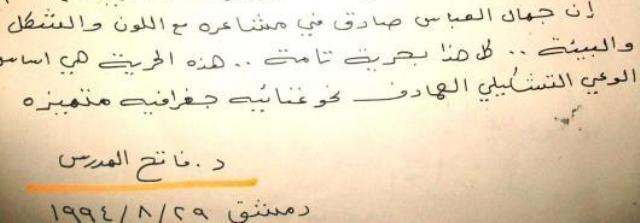 إن جمال العباس صادق في مشاعره مع اللون والشكل
والبيئة .. كل هذا بحرية تامة .. هذه الحرية هي اساس
الوعي التشكيلي الهادف نحو غنائيه جغرافيه متميزه
د. فاتح المدرس
دمشق ٢٩/٨/١٩٩٤